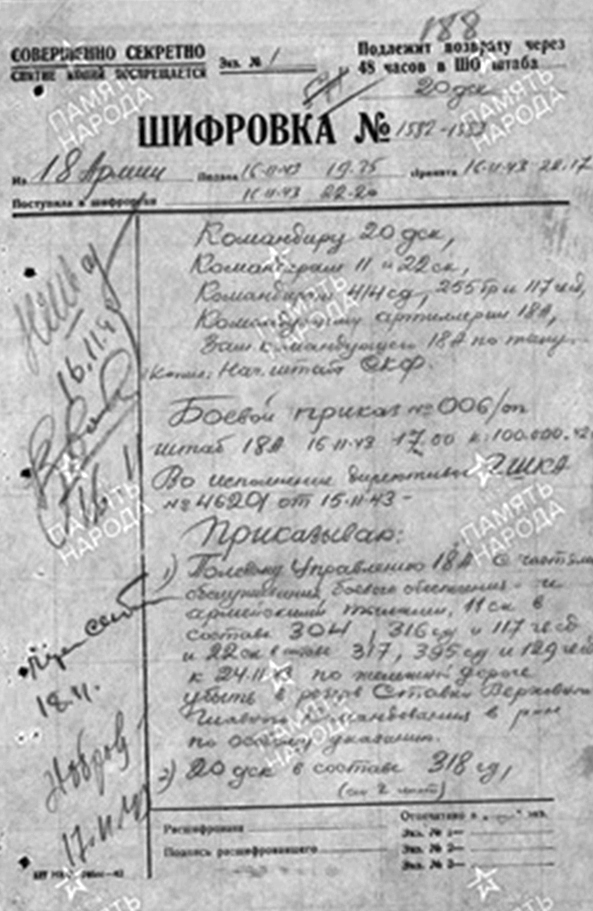 188
СОВЕРШЕННО СЕКРЕТНО
СНЯТИЕ КОПИЙ ВОСПРЕЩАЕТСЯ
Экз. № 1
Подлежит возврату через
48 часов в ШО штаба
20 дск
ШИФРОВКА № 1532-1533
Из 18 Армии Подана 16-11-43 19.35 Принята 16-11-43 22.17
Поступила в шифрорган 16-11-43 22-20
Командиру 20 дск,
Командирам 11 и 22 ск,
Командирам 414 сд, 255 бр и 117 гсд,
Командующему артиллерии 18А,
Зам командующего 18А по тылу.
Копия: Нач. штаба СКФ.
Боевой приказ № 006/оп
штаб 18А 16-11-43 17.00 к. 100.000.
Во исполнение директивы ГШКА
№ 46201 от 15-11-43 -
Приказываю:
1) Полевому Управлению 18А с частями
обслуживания боевого обеспечения и
армейскими тылами, 11 ск в
составе 304, 316 сд и 117 гсд
и 22 ск в составе 317, 395 сд и 129 гсд
к 24-11-43 по железной дороге
убыть в резерв Ставки Верховного
Главного Командования в район
по особому указанию.
2) 20 дск в составе 318 сд,
16.11.43
16.11
18.11.
17.11.43
Расшифрована
Подпись расшифровавшего
Отпечатано в экз.
Экз. № 1—
Экз. № 2—
Экз. № 3—
ПАМЯТЬ
НАРОДА